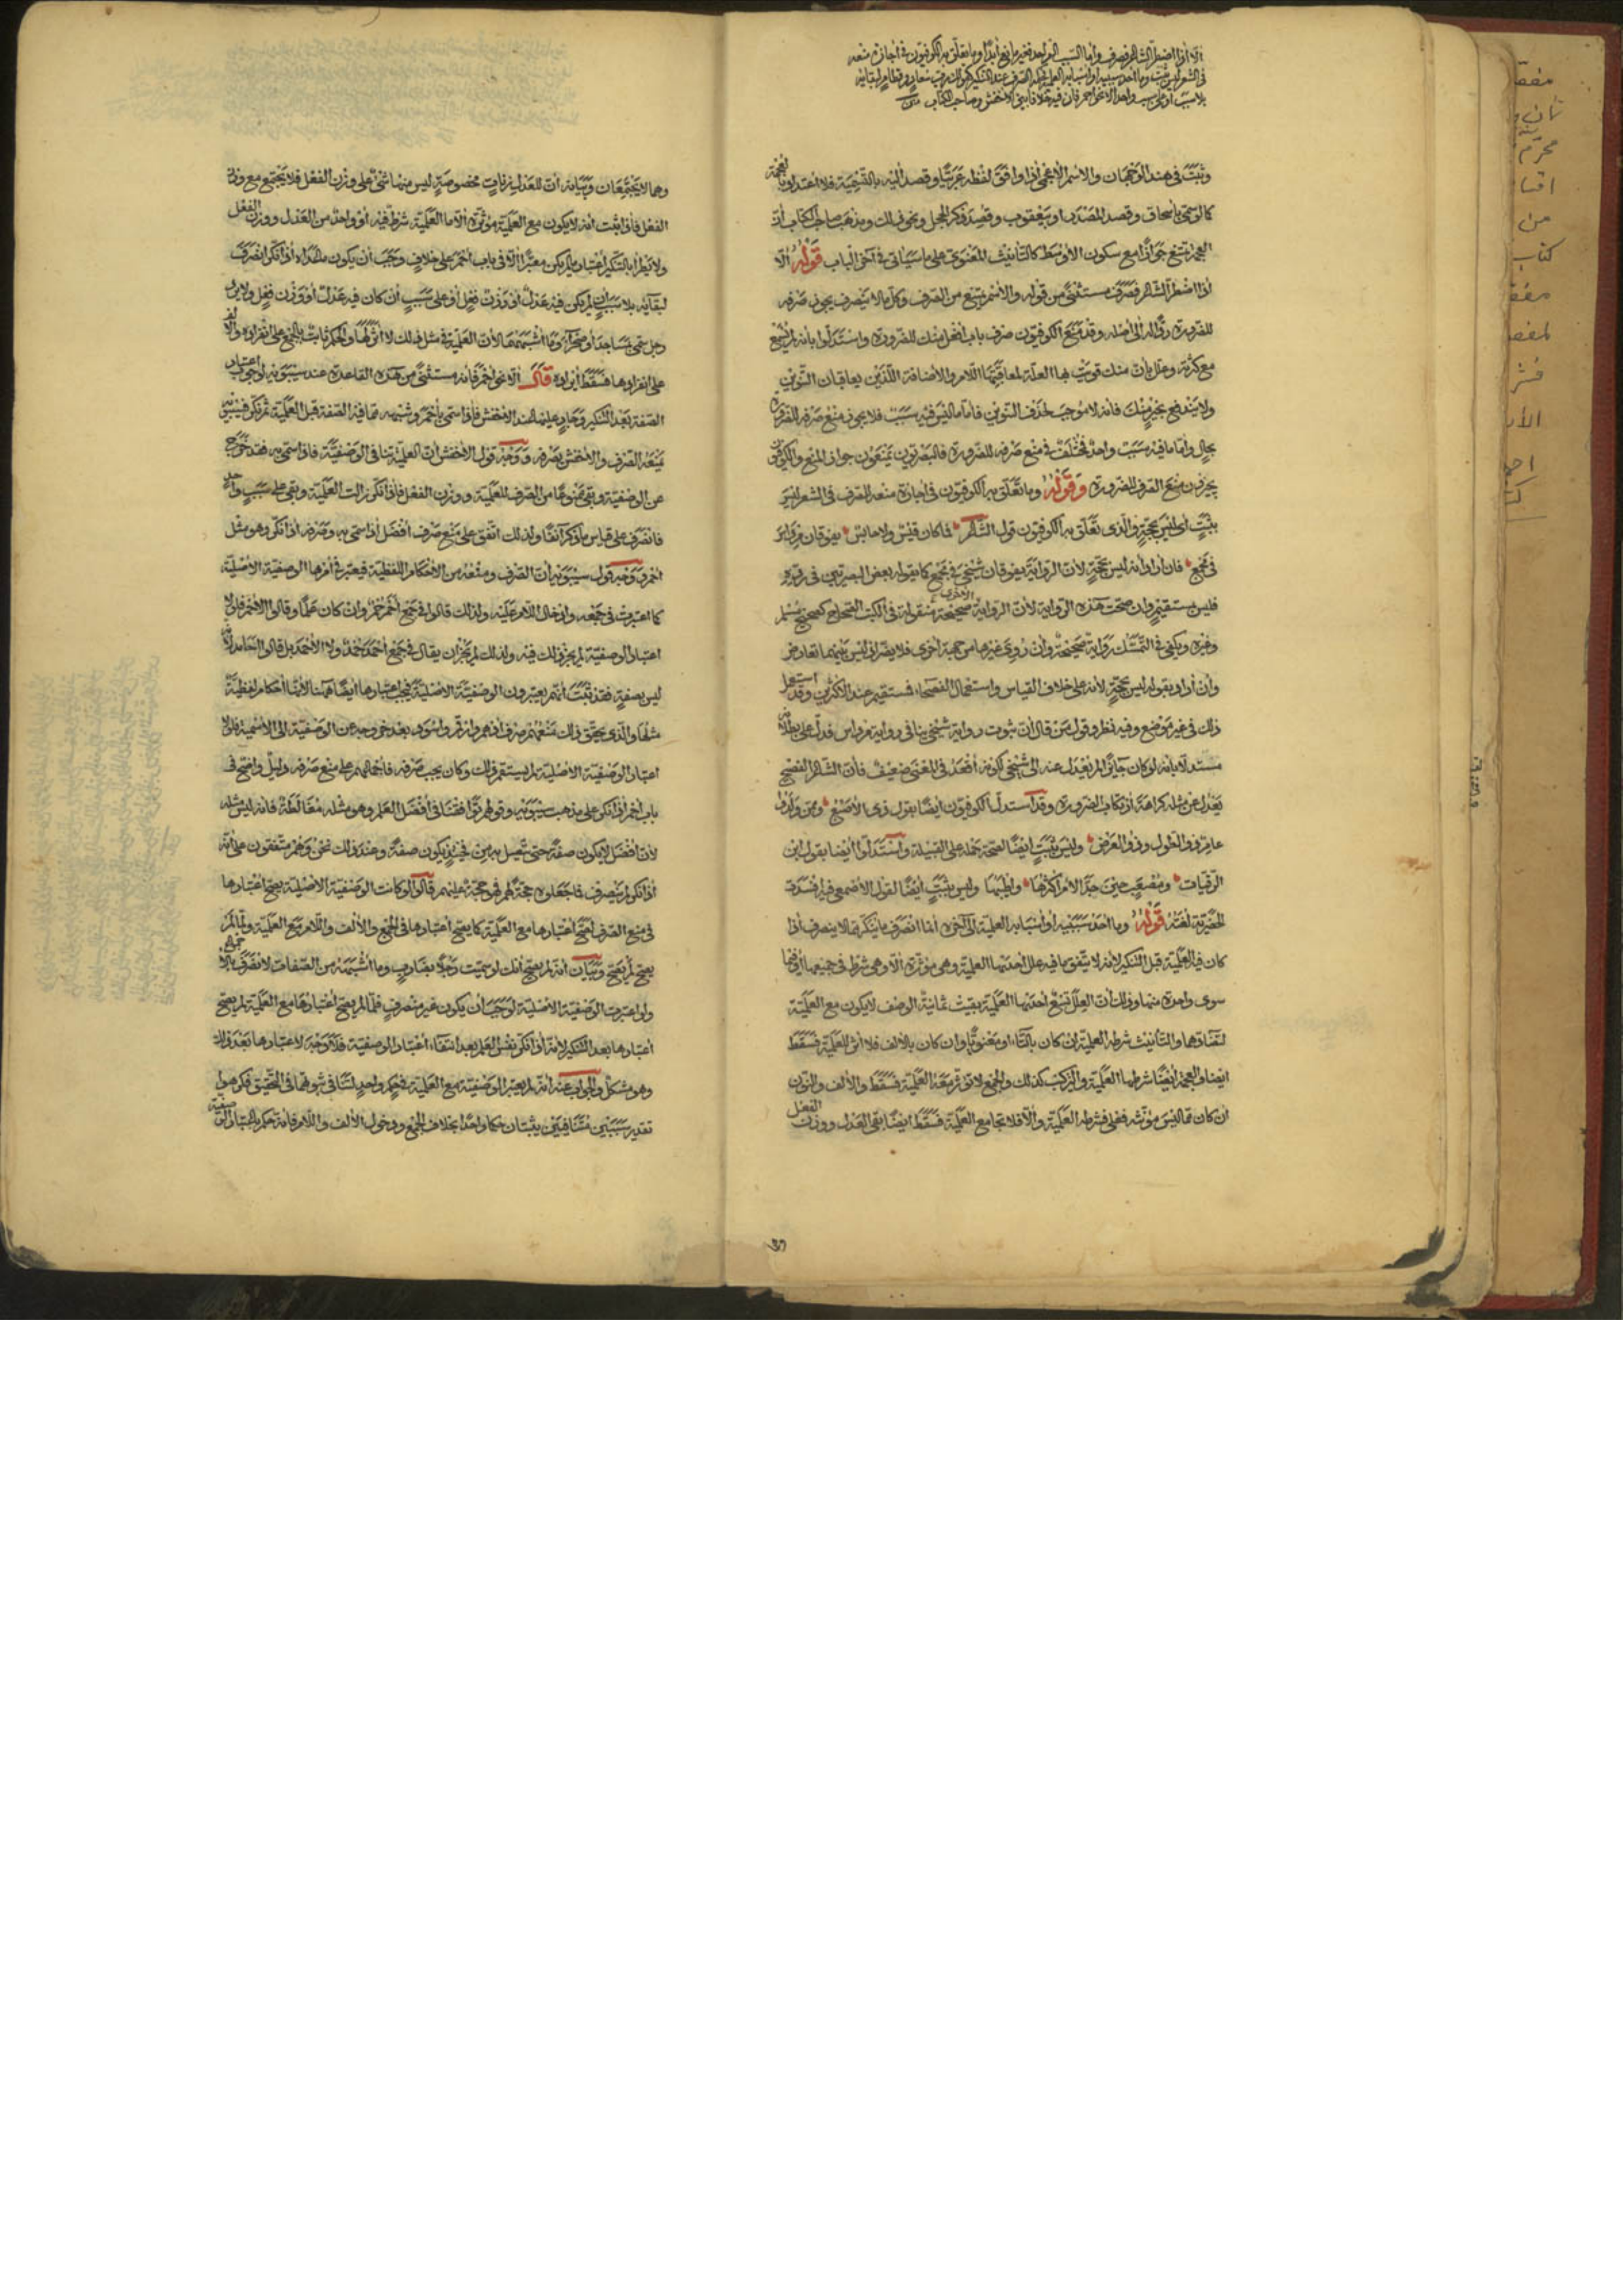 إلا إذا اضطر الشاعر فصرف وأما السبب الواحد فغير مانع أبدا وما تعلق به الكوفيون في إجازة منعه
في الشعر ليس بثبت وما أحد سببيه أو أسبابه العلمية فحكمه الصرف عند التنكير كقولك رب سعاد وقطام لبقائه
بلا سبب أو على سبب واحد إلا نحو أحمر فإن فيه خلافا بين الأخفش وصاحب الكتاب
وثبت في هند الوجهان والاسم الأعجمي إذا وافق لفظه عربيا وقصد إليه بالتسمية فلا اعتداد بالعجمة
كما لو سمي بإسحاق وقصد المصدر أو بيعقوب وقصد ذكر الحجل ونحو ذلك ومذهب صاحب الكتاب أن
العجمة تمنع جوازا مع سكون الأوسط كالتأنيث المعنوي على ما سيأتي في آخر الباب قوله إلا
إذا اضطر الشاعر فصرف مستثنى من قوله والاسم يمتنع من الصرف وكل ما لا ينصرف يجوز صرفه
للضرورة ردا له إلى أصله وقد منع الكوفيون صرف باب أفعل منك للضرورة واستدلوا بأنه لم يسمع
مع كثرته وعلل بأن منك قويت بها العلة لمعاقبتها اللام والإضافة اللذين يعاقبان التنوين
ولا يندفع بخير منك فإنه لا موجب لحذف التنوين فأما ما ليس فيه سبب فلا يجوز منع صرفه للضرورة
بحال وأما ما فيه سبب واحد فمختلف في منع صرفه للضرورة فالبصريون يمنعون جواز المنع والكوفيون
يجيزون منع الصرف للضرورة وقوله وما تعلق به الكوفيون في إجازة منعه الصرف في الشعر ليس
بثبت أي ليس بحجة والذي تعلق به الكوفيون قول الشاعر فما كان قيس ولا حابس يفوقان مرداس
في مجمع فإن أراد أنه ليس بحجة لأن الرواية يفوقان شيخي في مجمع كما يقوله بعض البصريين في رده
فليس بمستقيم وإن صحت هذه الرواية لأن الرواية الأخرى صحيحة منقولة في الكتب الصحاح كصحيح مسلم
وغيره ويكفي في التمسك رواية صحيحة وإن روي غيرها من جهة أخرى فلا يضر إذ ليس بينهما تعارض
وإن أراد بقوله ليس بحجة لأنه على خلاف القياس واستعمال الفصحاء فمستقيم عند الأكثرين وقد استعمل
ذلك في غير موضع وفيه نظر وقول من قال إن ثبوت رواية شيخي ينافي رواية مرداس فدل على بطلانه
مستدلا بأنه لو كان جائزا لم يعدل عنه إلى شيخي لكونه أقعد في المعنى ضعيف فإن الشاعر الفصيح
يعدل عن مثله كراهة ارتكاب الضرورة وقد استدل الكوفيون أيضا بقول ذي الأصبع وممن ولدوا
عامر ذو الطول وذو العرض وليس بثبت أيضا لصحة حمله على القبيلة واستدلوا أيضا بقول ابن
الرقيات ومصعب حين جد الأمر أكثرها وأطيبها وليس بثبت أيضا لقول الأصمعي فيه أفسدت
الحضرية لغته قوله وما أحد سببيه أو أسبابه العلمية إلى آخره إنما انصرف ما ينكر مما لا ينصرف إذا
كان فيه العلمية قبل التنكير لأنه لا يتفق ما فيه علل أحدها العلمية وهي مؤثرة إلا وهي شرط في جميعها أو فيما
سوى واحدة منها وذلك أن العلل تسع أحدها العلمية بقيت ثمانية الوصف لا يكون مع العلمية
لتضادهما والتأنيث شرطه العلمية إن كان بالتاء أو معنويا وإن كان بالألف فلا أثر للعلمية فسقط
أيضا والعجمة أيضا شرطها العلمية والتركيب كذلك والجمع لا تؤثر معه العلمية فسقط والألف والنون
إن كان مما ليس مؤنثه فعلى فشرطه العلمية وإلا فلا تجامع العلمية فسقط أيضا بقي العدل ووزن الفعل
وهما لا يجتمعان وبيانه أن للعدل زنات مخصوصة ليس منها شيء على وزن الفعل فلا يجتمع مع وزن
الفعل فإذا ثبت أنه لا يكون مع العلمية مؤثرة إلا ما العلمية شرط فيه أو واحد من العدل ووزن الفعل
ولا يطرأ بالتنكير اعتبار ما لم يكن معتبرا إلا في باب أحمر على خلاف وجب أن يكون ما هذا إذا نكر انصرف
لبقائه بلا سبب إن لم يكن فيه عدل أو وزن فعل أو على سبب إن كان فيه عدل أو وزن فعل ولا يرد
رجل سمي بمساجد أو صحراء وما أشبههما لأن العلمية في مثل ذلك لا أثر لها والحكم ثابت بالجمع على انفراده والألف
على انفرادها فسقط إيراده قال إلا نحو أحمر فإنه مستثنى من هذه القاعدة عند سيبويه لوجوب اعتبار
الصفة بعد التنكير وجار عليها عند الأخفش فإذا سمي بأحمر وشبهه مما فيه الصفة قبل العلمية ثم نكر فسيبويه
يمنعه الصرف والأخفش يصرفه ووجه قول الأخفش أن العلمية تنافي الوصفية فإذا سمي به فقد خرج
عن الوصفية وبقي ممنوعا من الصرف للعلمية ووزن الفعل فإذا نكر زالت العلمية وبقي على سبب واحد
فانصرف على قياس ما ذكر آنفا ولذلك اتفق على منع صرف أفضل إذا سمي به وصرفه إذا نكر وهو مثل
أحمر ووجه قول سيبويه أن الصرف ومنعه من الأحكام اللفظية فيعتبر في أمرها الوصفية الأصلية
كما اعتبرت في جمعه وإدخال اللام عليه ولذلك قالوا في جمع أحمر حمر وإن كان علما وقالوا الأحمر فلولا
اعتبار الوصفية لم يجز ذلك فيه ولذلك لم يجز أن يقال في جمع أحمد حمد ولا الأحمد بل قالوا الأحامد لأنه
ليس بصفة فقد ثبت أنهم يعتبرون الوصفية الأصلية فيجب اعتبارها أيضا ههنا لأنها أحكام لفظية
مثلها والذي يحقق ذلك منعهم صرف أدهم وأرقم وأسود بعد خروجه عن الوصفية إلى الاسمية فلولا
اعتبار الوصفية الأصلية لم يستقم ذلك وكان يجب صرفه فإجماعهم على منع صرفه دليل واضح في
باب أحمر إذا نكر على مذهب سيبويه وقولهم قد اتفقنا في أفضل العلم وهو مثله مغالطة فإنه ليس مثله
لأن أفضل لا يكون صفة حتى تتصل به من فحينئذ يكون صفة وعند ذلك نحن وهم متفقون على أنه
إذا نكر لم ينصرف فما جعلوه حجة لهم فهو حجة عليهم قالوا لو كانت الوصفية الأصلية يصح اعتبارها
في منع الصرف لصح اعتبارها مع العلمية كما يصح اعتبارها في الجمع والألف واللام مع العلمية ولما لم
يصح لم يصح وبيان أنه لم يصح أنك لو سميت رجلا بضارب وما أشبهه من الصفات لانصرف بالإجماع
ولو اعتبرت الوصفية الأصلية لوجب أن يكون غير منصرف فلما لم يصح اعتبارها مع العلمية لم يصح
اعتبارها بعد التنكير لأنه إذا نكر نفس العلم بعد انتفاء اعتبار الوصفية فلا وجه لاعتبارها بعد ذلك
وهو مشكل والجواب عنه أنه لم يعتبر الوصفية مع العلمية في حكم واحد لتنافي ثبوتهما في التحقيق فكرهوا
تقدير سببين متنافيين يثبتان حكما واحدا بخلاف الجمع ودخول الألف واللام فإنه حكم باعتبار الوصفية